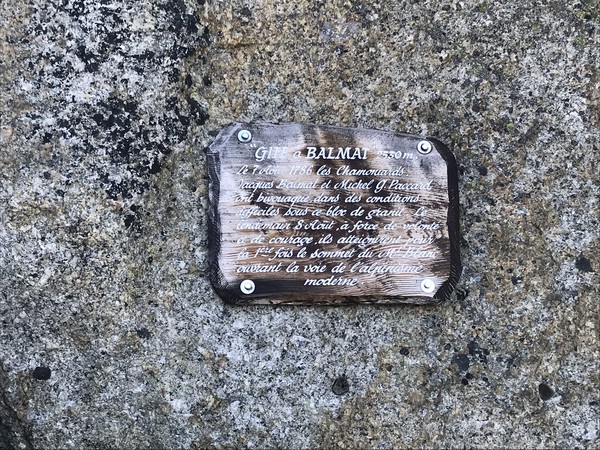 GITE à BALMAT 2530 m.
Le 7 Août 1786 les Chamoniards
Jacques Balmat et Michel G. Paccard
ont bivouaqué, dans des conditions
difficiles sous ce bloc de granit. Le
lendemain 8 Août, à force de volonté
et de courage, ils atteignirent pour
la 1ère fois le sommet du Mt Blanc
ouvrant la voie de l'alpinisme
moderne